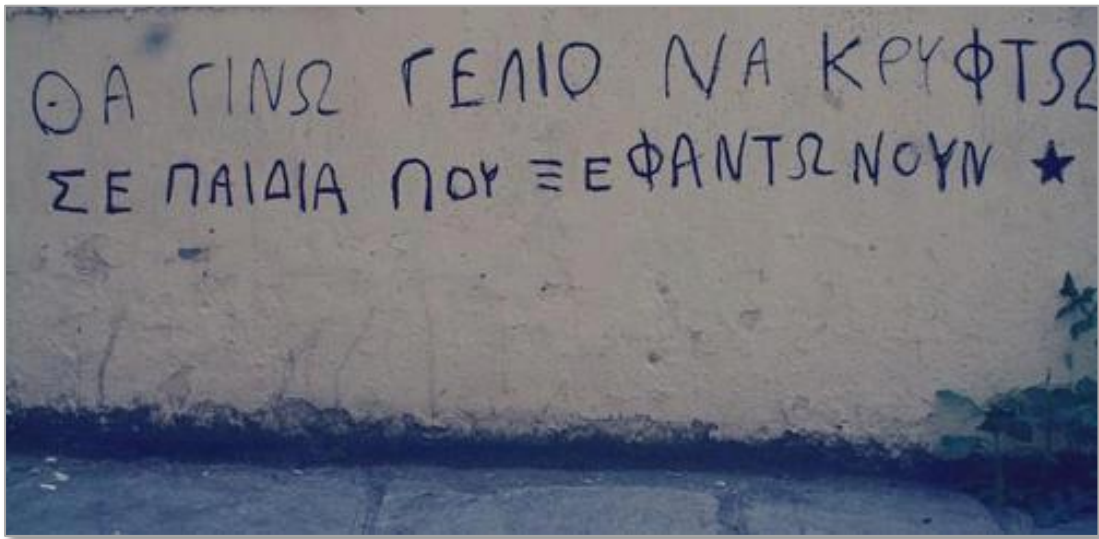 ΘΑ ΓΙΝΩ ΓΕΛΙΟ ΝΑ ΚΡΥΦΤΩ
ΣΕ ΠΑΙΔΙΑ ΠΟΥ ΞΕΦΑΝΤΩΝΟΥΝ ★